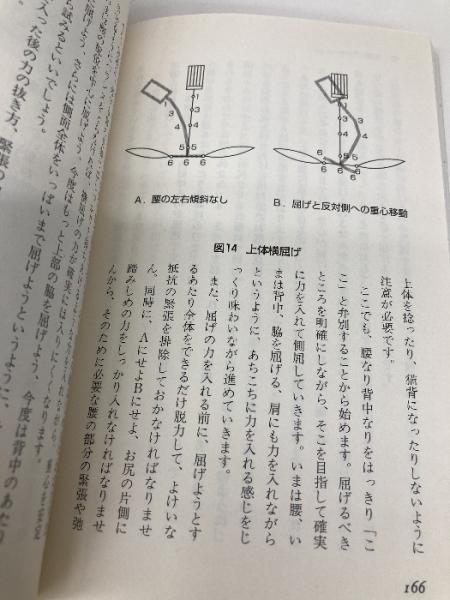 A. 腰の左右傾斜なし
B. 屈げと反対側への重心移動
図14 上体横屈げ
上体を捻ったり、猫背になったりしないように
注意が必要です。
ここでも、腰なり背中なりをはっきり「こ
こ」と弁別することから始めます。屈げるべき
ところを明確にしながら、そこを目指して確実
に力を入れて側屈していきます。いまは腰、い
まは背中、脇を屈げる、肩にも力を入れながら
というように、あちこちに力を入れる感じをじ
っくり味わいながら進めていきます。
また、屈げの力を入れる前に、屈げようとす
るあたり全体をできるだけ脱力して、よけいな
抵抗の緊張を排除しておかなければなりませ
ん。同時に、Aにせよ Bにせよ、お尻の片側に
踏みしめの力をしっかり入れなければなりませ
んから、そのために必要な腰の部分の緊張や弛
166
屈げよう、さらには側面全体をいっぱいまで屈げようというように、
今度はもっと上部の脇を屈げよう、今度は背中のあたり
ら試みるといいでしょう。
入った後の力の抜き方、